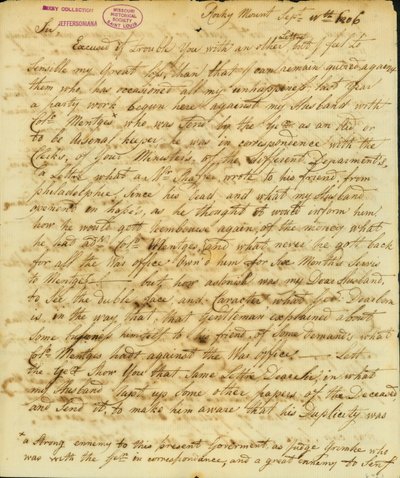 BIXBY COLLECTION
JEFFERSONIANA
MISSOURI
HISTORICAL
SOCIETY
SAINT LOUIS
Rocky Mount Sept 1806
Sir
Excused I trouble You with an other Letter but I feel to
sensible my Great loss, than that I can remain
them who has occasionet all my unhapiness, last Year
a party work begun here against my Husband with
Colo. Mentges who was Send by the as an
to be Arsenal keeper he was in corespondence with the
Clerks, of Your Ministers, of the different Deparments
a Lettre what a Mr. wrote to his friend, from
philadelphie, Since his Dead, and what my Husband
oveneth in hope's, as he thought it would inform him
how he would gott again, of the money what
he had adv. Colo. Mentges, and what never he gott back
for all the War office Own'd him for Six Months Serves
to Mentges but how astonish was my Dear Husband,
to See the duble face and Caracter what Dearborn
is, in the way, that, that Gentleman explained about
Some himself, to his friend, of Some demands what
Colo. Mentges hadt against the War office Lett
the Show You that Same Lettre Dear Sir, in what
my Husband lapt up Some other papers of the Deceased
and Send it, to make him aware that his Duplicity was
a Strong ennemy to this present Goverment, as Judge Grimke who
was with the in correspondence, and a great Ennemy to